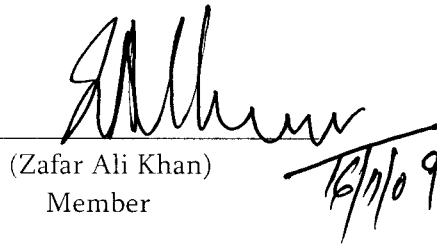 (Zafar Ali Khan)
Member
16/7/09